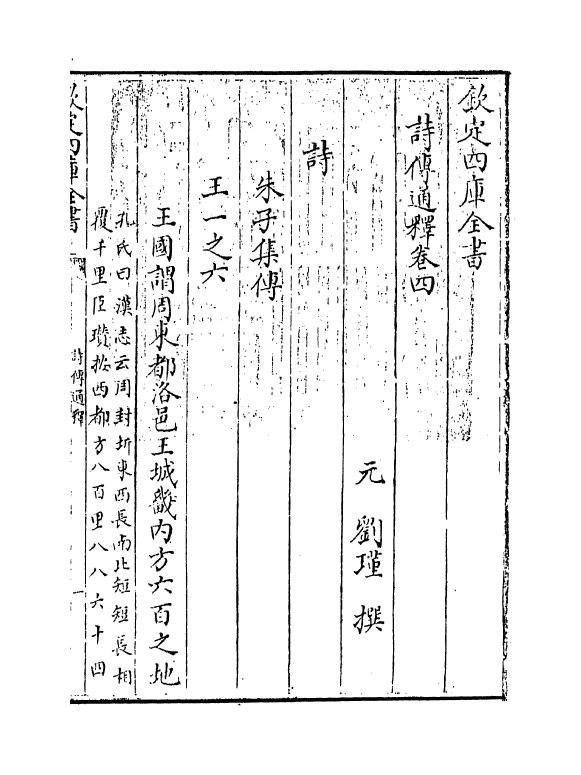 欽定四庫全書
詩傳通釋卷四
元 劉瑾 撰
詩
朱子集傳
王一之六
王國謂周東都洛邑王城畿内方六百之地
孔氏曰漢志云周封圻東西長南北短短長相
覆千里臣瓚按西都方八百里八八六十四
欽定四庫全書
詩傳通釋
一